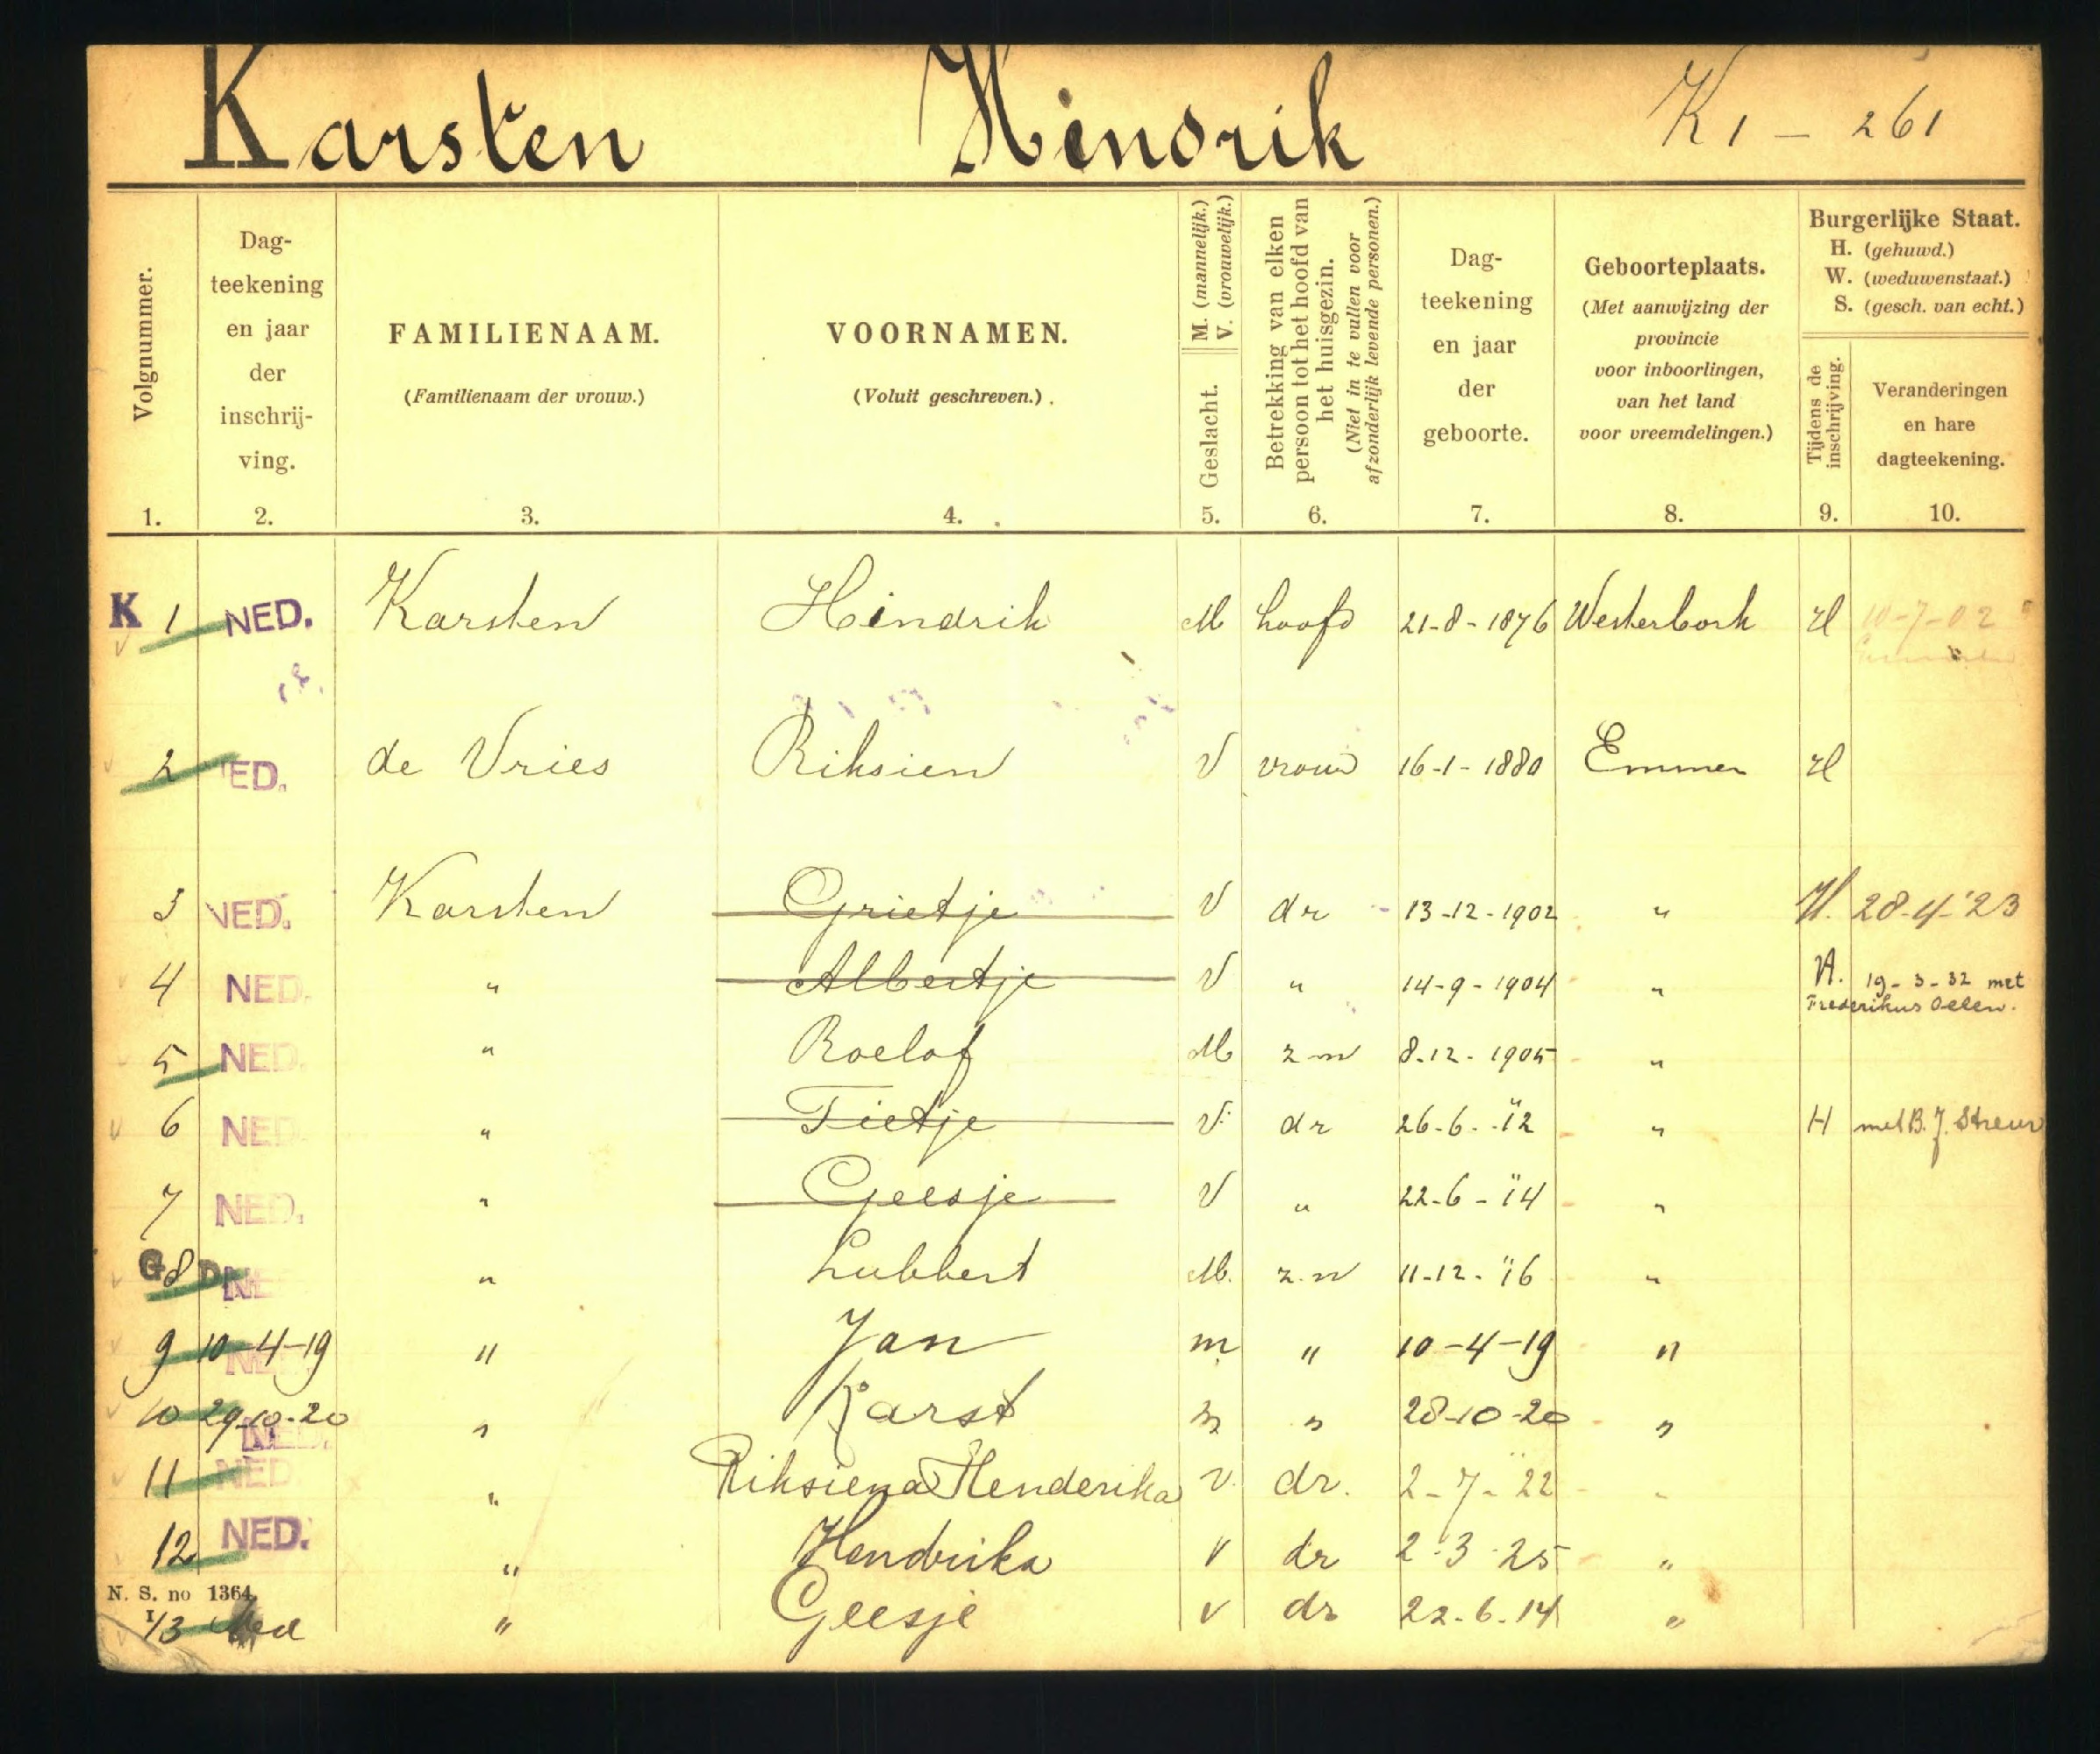 Karsten Hindrik K1 - 261
Volgnummer.
Dag-
teekening
en jaar
der
inschrij-
ving.
FAMILIENAAM.
(Familienaam der vrouw.)
VOORNAMEN.
(Voluit geschreven.)
M. (mannelijk.)
V. (vrouwelijk.)
Geslacht.
Betrekking van elken
persoon tot het hoofd van
het huisgezin.
(Niet in te vullen voor
afzonderlijk levende personen.)
Dag-
teekening
en jaar
der
geboorte.
Geboorteplaats.
(Met aanwijzing der
provincie
voor inboorlingen,
van het land
voor vreemdelingen.)
Burgerlijke Staat.
H. (gehuwd.)
W. (weduwenstaat.)
S. (gesch. van echt.)
Tijdens de
inschrijving.
Veranderingen
en hare
dagteekening.
1. 2. 3. 4. 5. 6. 7. 8. 9. 10.
K 1 NED. Karsten Hindrik M hoofd 21-8-1876 Westerbork H 10-7-02
2 ED. de Vries Riksien V vrouw 16-1-1880 Emmen H
3 NED. Karsten Grietje V dr 13-12-1902 " H. 28-4-'23
4 NED. " Albertje V " 14-9-1904 " H. 19-3-32 met
Frederikus Oelen.
5 NED. " Roelof M zn 8-12-1905 "
6 NED. " Tietje V. dr 26-6-"12 " H met B.J. Streur
7 NED. " Geesje V " 22-6-"14 "
G 8 D NE " Lubbert M. zn 11-12-"16 "
9 10-4-19 NED. " Jan m " 10-4-19 "
10 29-10-20 NED. " Karst m " 28-10-20 "
11 NED. " Riksiena Henderika v. dr. 2-7-"22 "
12 NED. " Hendrika v dr 2-3-25 "
N. S. no 1364
13 Ned " Geesje v dr 22-6-14 "